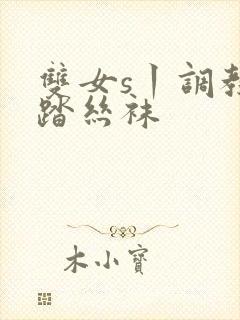 雙女s丨調教
踏絲袜
木小寶